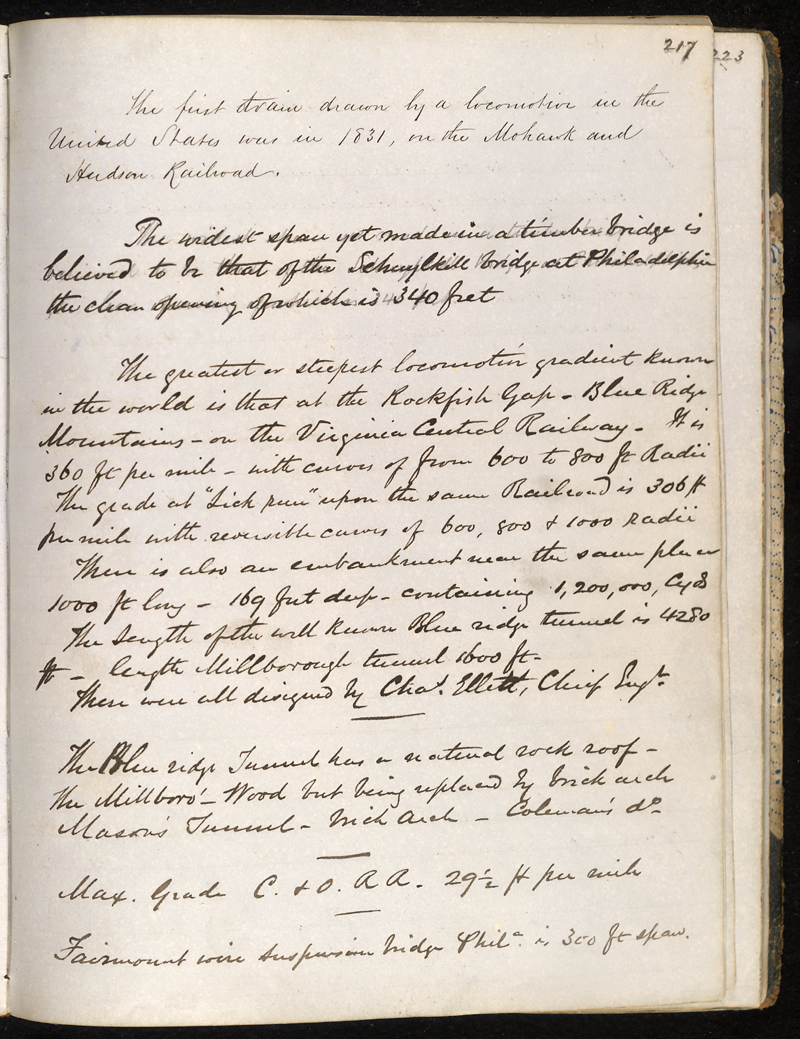 217
223
The first train drawn by a locomotive in the
United States was in 1831, on the Mohawk and
Hudson Railroad.
The widest span yet made in a timber bridge is
believed to be that of the Schuylkill bridge at Philadelphia
the clear opening of which is 340 feet
The greatest or steepest locomotive gradient known
in the world is that at the Rockfish Gap - Blue Ridge
Mountains - on the Virginia Central Railway - It is
360 ft per mile - with curves of from 600 to 800 ft Radii
The grade at "Lick run" upon the same Railroad is 306 ft
per mile with reversible curves of 600, 800 & 1000 radii
There is also an embankment near the same place
1000 ft long - 169 feet deep - containing 1,200,000, Cyds
The length of the well known Blue ridge tunnel is 4280
ft - length Millborough tunnel 1600 ft -
These were all disigned by Chas. Ellett, Chief Engr.
The Blue ridge Tunnel has a natural rock roof -
the Millboro' - Wood but being replaced by brick arch
Mason's Tunnel - brick arch - Coleman's do
Max. Grade C. & O. R R. - 29 1/2 ft per mile
Fairmount wire suspension bridge Phila. is 300 ft span.